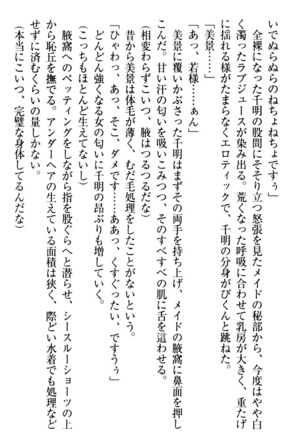 いでぬらぬらのねちょねちょですぅ」
全裸になった千明の股間にそそり立つ怒張を見たメイドの秘部から、今度はやや白
く濁ったラブジュースが染み出る。荒くなった呼吸に合わせて乳房が大きく、重たげ
に揺れる様がたまらなくエロティックで、千明の分身がびくんと跳ねた。
「美景……」
「あっ、若様……ぁん」
美景に覆いかぶさった千明はまずその両手を持ち上げ、メイドの腋窩に鼻面を押し
こんだ。甘い汗の匂いを吸いこみつつ、そのすべすべの肌に舌を這わせる。
(相変わらずこいつ、腋はつるつるだな)
昔から美景は体毛が薄く、むだ毛処理をしたことがないという。
(こっちもほとんど生えてないし)
「ひゃわっ、あっ、そこ、ダメですっ……あっ、くすぐったい、ですうぅ」
どんどん強くなる女の匂いに千明の昂ぶりも増していく。
腋窩へのペッティングをしながら指を股ぐらへと潜らせ、シースルーショーツの上
から恥丘を撫でる。アンダーヘアの生えている面積は狭く、際どい水着でも処理など
せずに済むくらいの量しかない。
(本当にこいつ、完璧な身体してるんだな)